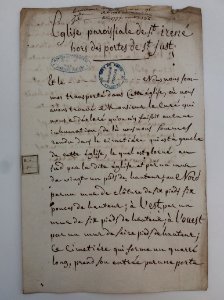 Eglise paroissiale de St irené
hors des portes de St Just.
Le 12 Nous nous som-
mes transportés dans cette église, où nous
avons trouvé Monsieur le Curé qui
nous a déclaré qu'on n'y faisoit aucune
inhumation, de là nous nous sommes
rendus dans le cimetière qui est à gauche
de cette église, lequel est fermé au
sud par la dite église et par un mur
de vingt un pieds de hauteur; au Nord
par un mur de clôture de six pieds six
pouces de hauteur; à l'est par un
mur de six pieds de hauteur; à l'ouest
par un mur de seize pieds de hauteur;
Ce Cimetière qui forme un quarré
long, prend son entrée par une porte